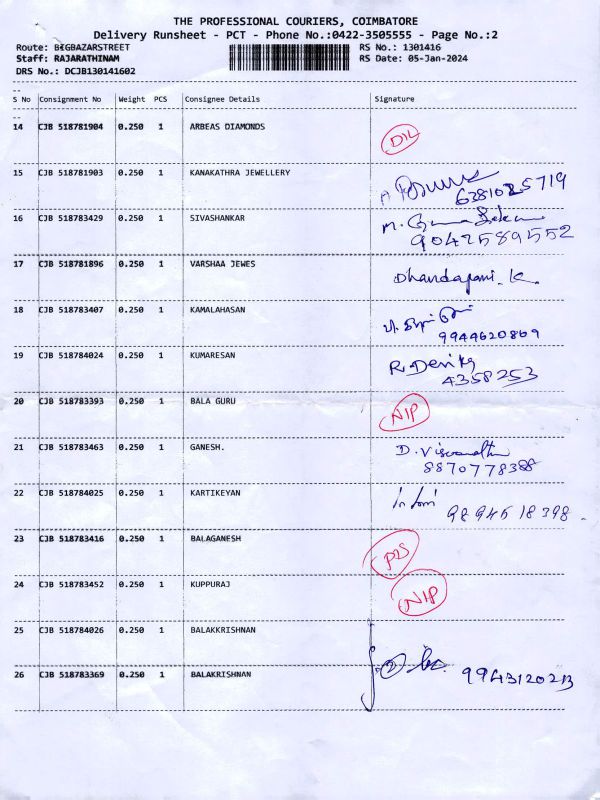 THE PROFESSIONAL COURIERS, COIMBATORE
Delivery Runsheet - PCT - Phone No.:0422-3505555 - Page No.:2
Route: BIGBAZARSTREET RS No.: 1301416
Staff: RAJARATHINAM RS Date: 05-Jan-2024
DRS No.: DCJB130141602
S No Consignment No Weight PCS Consignee Details Signature
14 CJB 518781904 0.250 1 ARBEAS DIAMONDS
15 CJB 518781903 0.250 1 KANAKATHRA JEWELLERY
6381025719
16 CJB 518783429 0.250 1 SIVASHANKAR
9042589552
17 CJB 518781896 0.250 1 VARSHAA JEWES
Dhandapani. K.
18 CJB 518783407 0.250 1 KAMALAHASAN
9944620869
19 CJB 518784024 0.250 1 KUMARESAN
R. Devika
4358253
20 CJB 518783393 0.250 1 BALA GURU
NIP
21 CJB 518783463 0.250 1 GANESH.
D. Viswanathan
8870778388
22 CJB 518784025 0.250 1 KARTIKEYAN
9894518398
23 CJB 518783416 0.250 1 BALAGANESH
24 CJB 518783452 0.250 1 KUPPURAJ
NIP
25 CJB 518784026 0.250 1 BALAKKRISHNAN
26 CJB 518783369 0.250 1 BALAKRISHNAN
9943120213